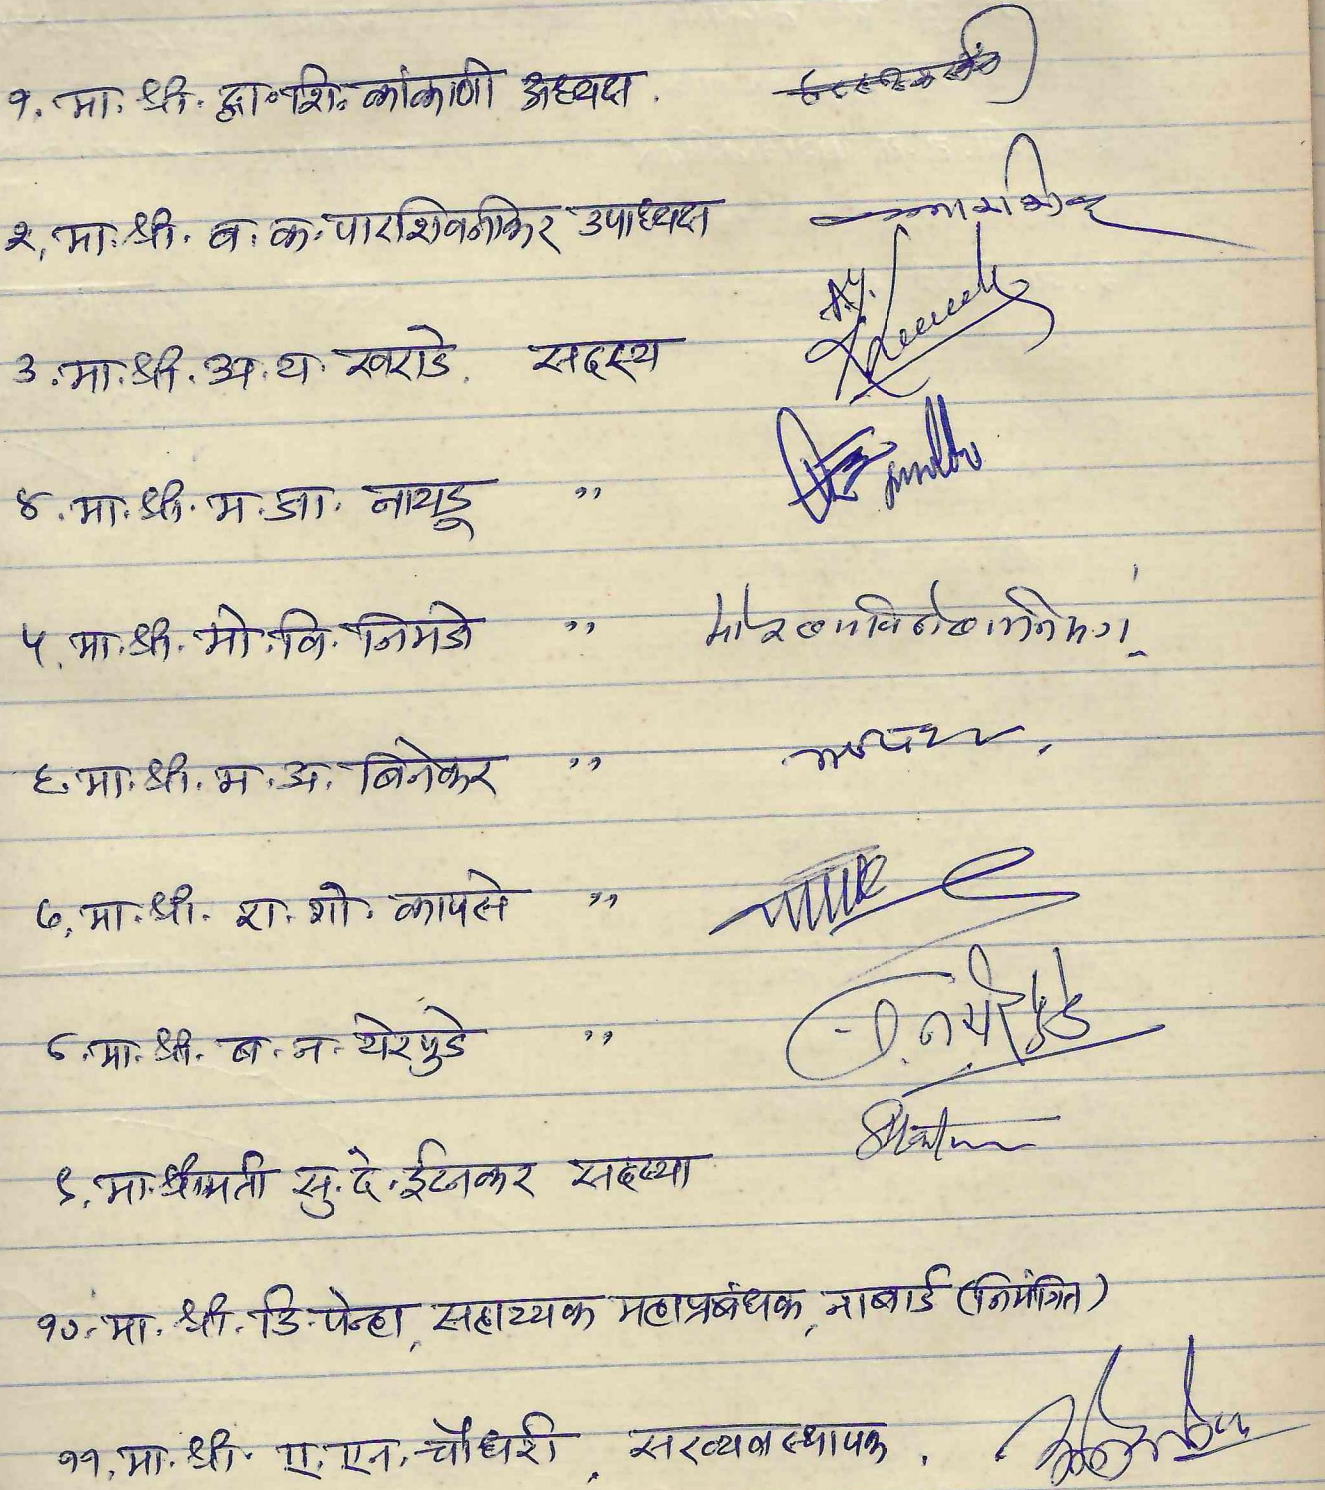 १. मा. श्री. द्वा. शि. कांकाणी अध्यक्ष.
२. मा. श्री. ब. क. पारशिवनीकर उपाध्यक्ष
३. मा. श्री. अ. य. खराडे. सदस्य
४. मा. श्री. म. झा. नायडू ,,
५. मा. श्री. मो. वि. निमजे ,,
६. मा. श्री. म. अ. बिनेकर ,,
७. मा. श्री. रा. शो. कापसे ,,
८. मा. श्री. ब. न. येरपुडे ,,
९. मा. श्रीमती सु. दे. ईटनकर सदस्या
१०. मा. श्री. डि. पेन्हा, सहाय्यक महाप्रबंधक, नाबार्ड (निमंत्रित)
११. मा. श्री. ए. एन. चौधरी, सरव्यवस्थापक.